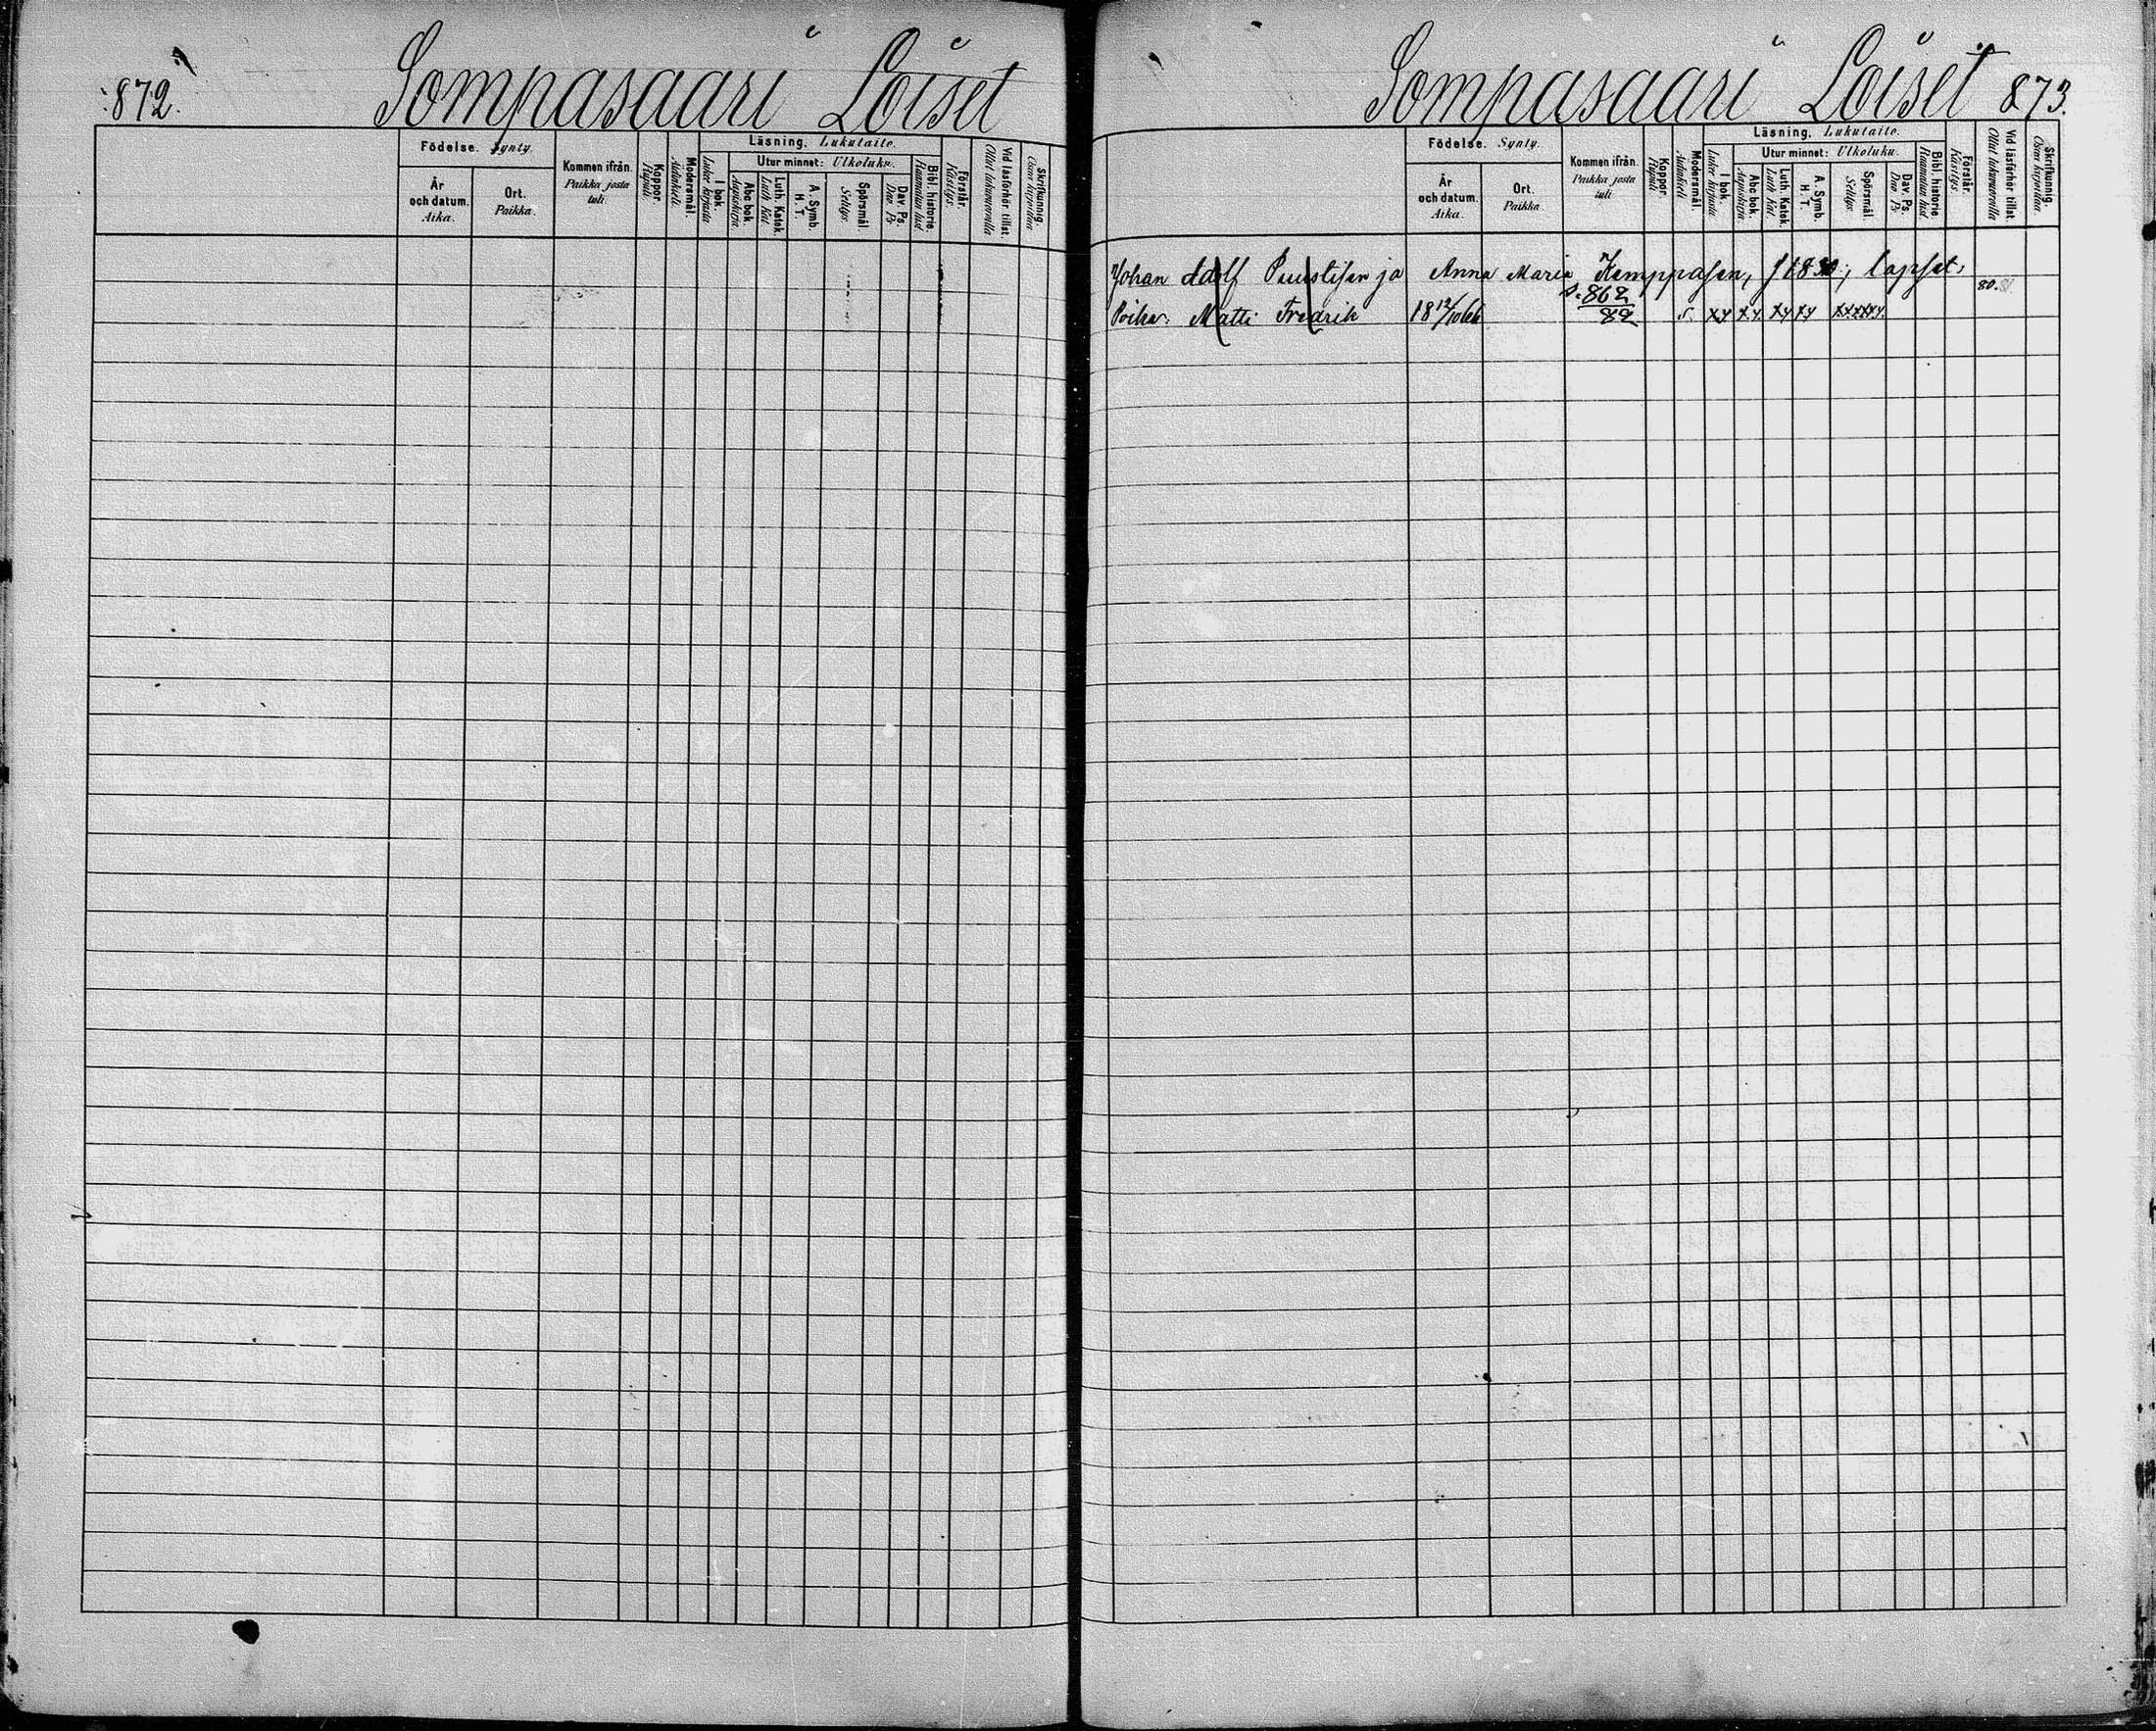 872.
Sompasaari Loiset
Födelse. Synty.
År och datum. Aika.
Ort. Paikka.
Kommen ifrån. Paikka josta tuli.
Koppor. Rupuli.
Modersmål. Äidinkieli.
Läsning. Lukutaito.
I bok. Lukee kirjasta
Utur minnet: Ulkoluku.
Abc bok. Aapiskirja
Luth. Katek. Luth Kat.
A. Symb. H. T.
Spörsmål. Selitys.
Dav. Ps. Dav. Ps
Bibl. historie. Raamatun hist
Förstår. Käsitys.
Vid läsförhör tillst. Ollut lukuvuorolla
Skrifkunnig. Osaa kirjoittaa
Sompasaari Loiset 873.
Födelse. Synty.
År och datum. Aika.
Ort. Paikka
Kommen ifrån. Paikka josta tuli
Koppor. Rupuli
Modersmål. Äidinkieli
Läsning. Lukutaito.
I bok. Lukee kirjasta
Utur minnet: Ulkoluku.
Abc bok. Aapiskirja.
Luth. Katek. Luth Kat.
A. Symb. H. T.
Spörsmål. Selitys.
Dav. Ps. Dav. Ps
Bibl. historie. Raamatun hist.
Förstår. Käsitys.
Vid läsförhör tillst. Ollut lukuvuorolla
Skrifkunnig. Osaa kirjoittaa.
Johan Adolf Puustisen ja Anna Maria Kemppasen, lapset: 80.
Poika: Matti Fredrik 18 12/10 66 s. 862 82 s. xx xx xx xx xxxxx